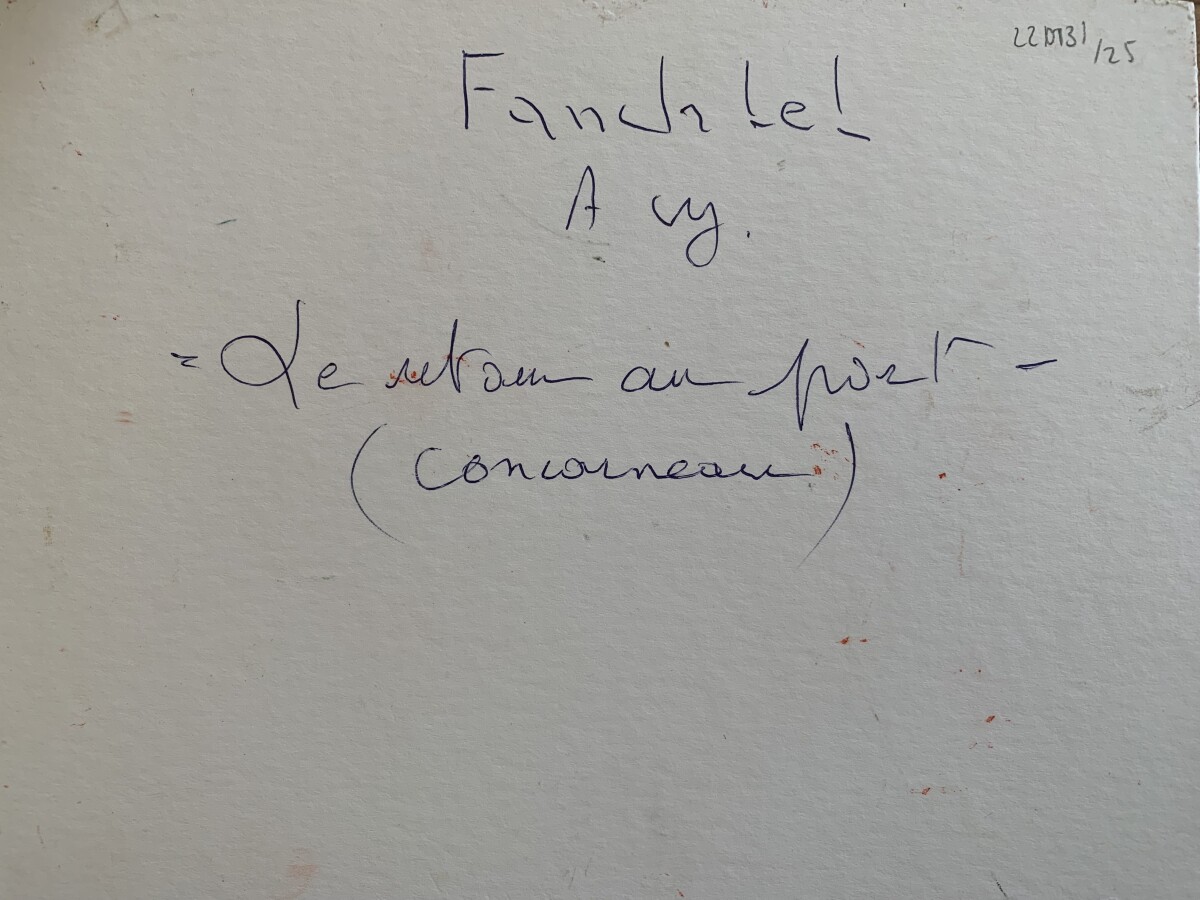 22DT31/25
Fanch Lel
A vy.
- Le retour au port -
(Concarneau)